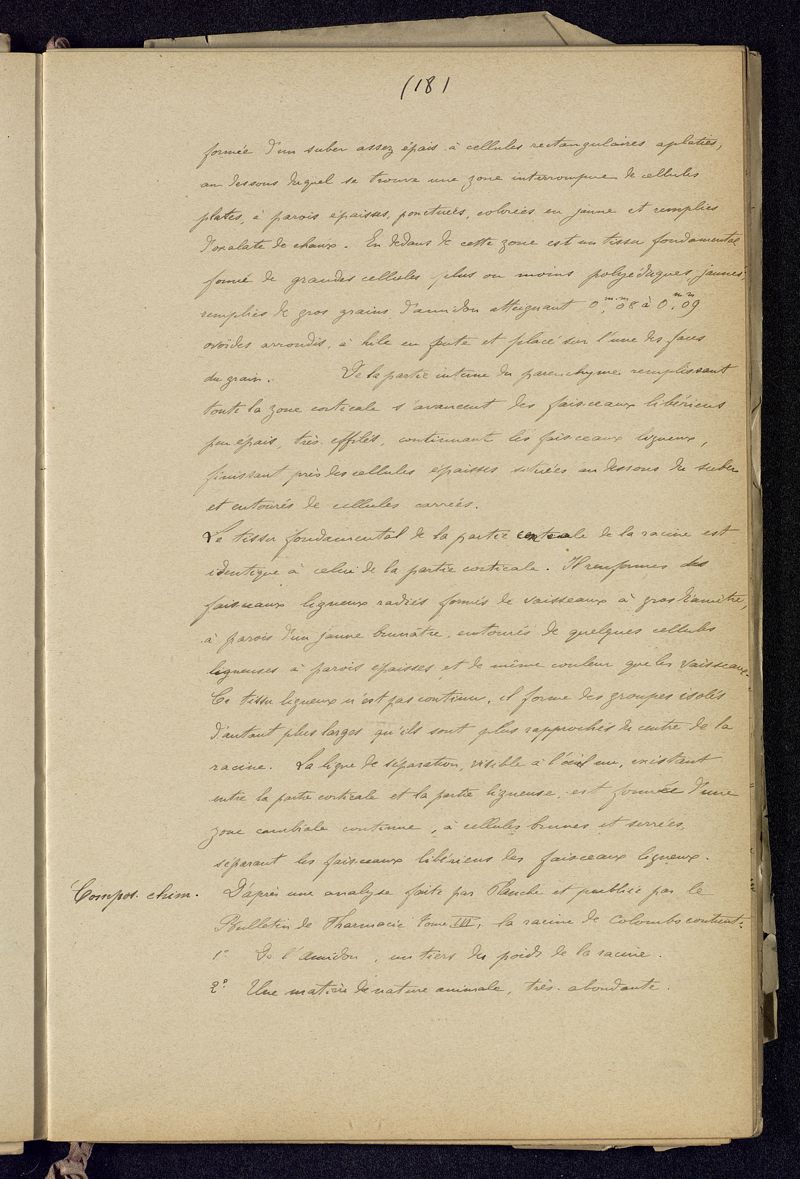 (18)
formée d'un suber assez épais à cellules rectangulaires aplaties,
au dessous duquel se trouve une zone interrompue de cellules
plates, à parois épaisses, ponctuées, colorées en jaune et remplies
d'oxalate de chaux. En dedans de cette zone est un tissu fondamental
formé de grandes cellules plus ou moins polyédriques, jaunes,
remplies de gros grains d'amidon atteignant 0,mm08 à 0,mm09
ovoïdes arrondis, à hile en fente et placé sur l'une des faces
du grain. De la partie interne du parenchyme remplissant
toute la zone corticale s'avancent des faisceaux libériens
peu épais, très effilés, continuant les faisceaux ligneux,
finissant près des cellules épaisses situées au dessous du suber
et entourés de cellules carrées.
Le tissu fondamental de la partie centrale de la racine est
identique à celui de la partie corticale. Il renferme des
faisceaux ligneux radiés formés de vaisseaux à gros diamètre,
à parois d'un jaune brunâtre, entourés de quelques cellules
ligneuses à parois épaisses et de même couleur que les vaisseaux.
Ce tissu ligneux n'est pas continu, il forme des groupes isolés
d'autant plus larges qu'ils sont plus rapprochés du centre de la
racine. La ligne de séparation, visible à l'œil nu, existant
entre la partie corticale et la partie ligneuse est formée d'une
zone cambiale continue, à cellules brunes et serrées,
séparant les faisceaux libériens des faisceaux ligneux.
Compos. chim. D'après une analyse faite par Planche et publiée par le
Bulletin de Pharmacie Tome III, la racine de Colombo contient:
1° De l'amidon, un tiers du poids de la racine.
2° Une matière de nature animale, très abondante.